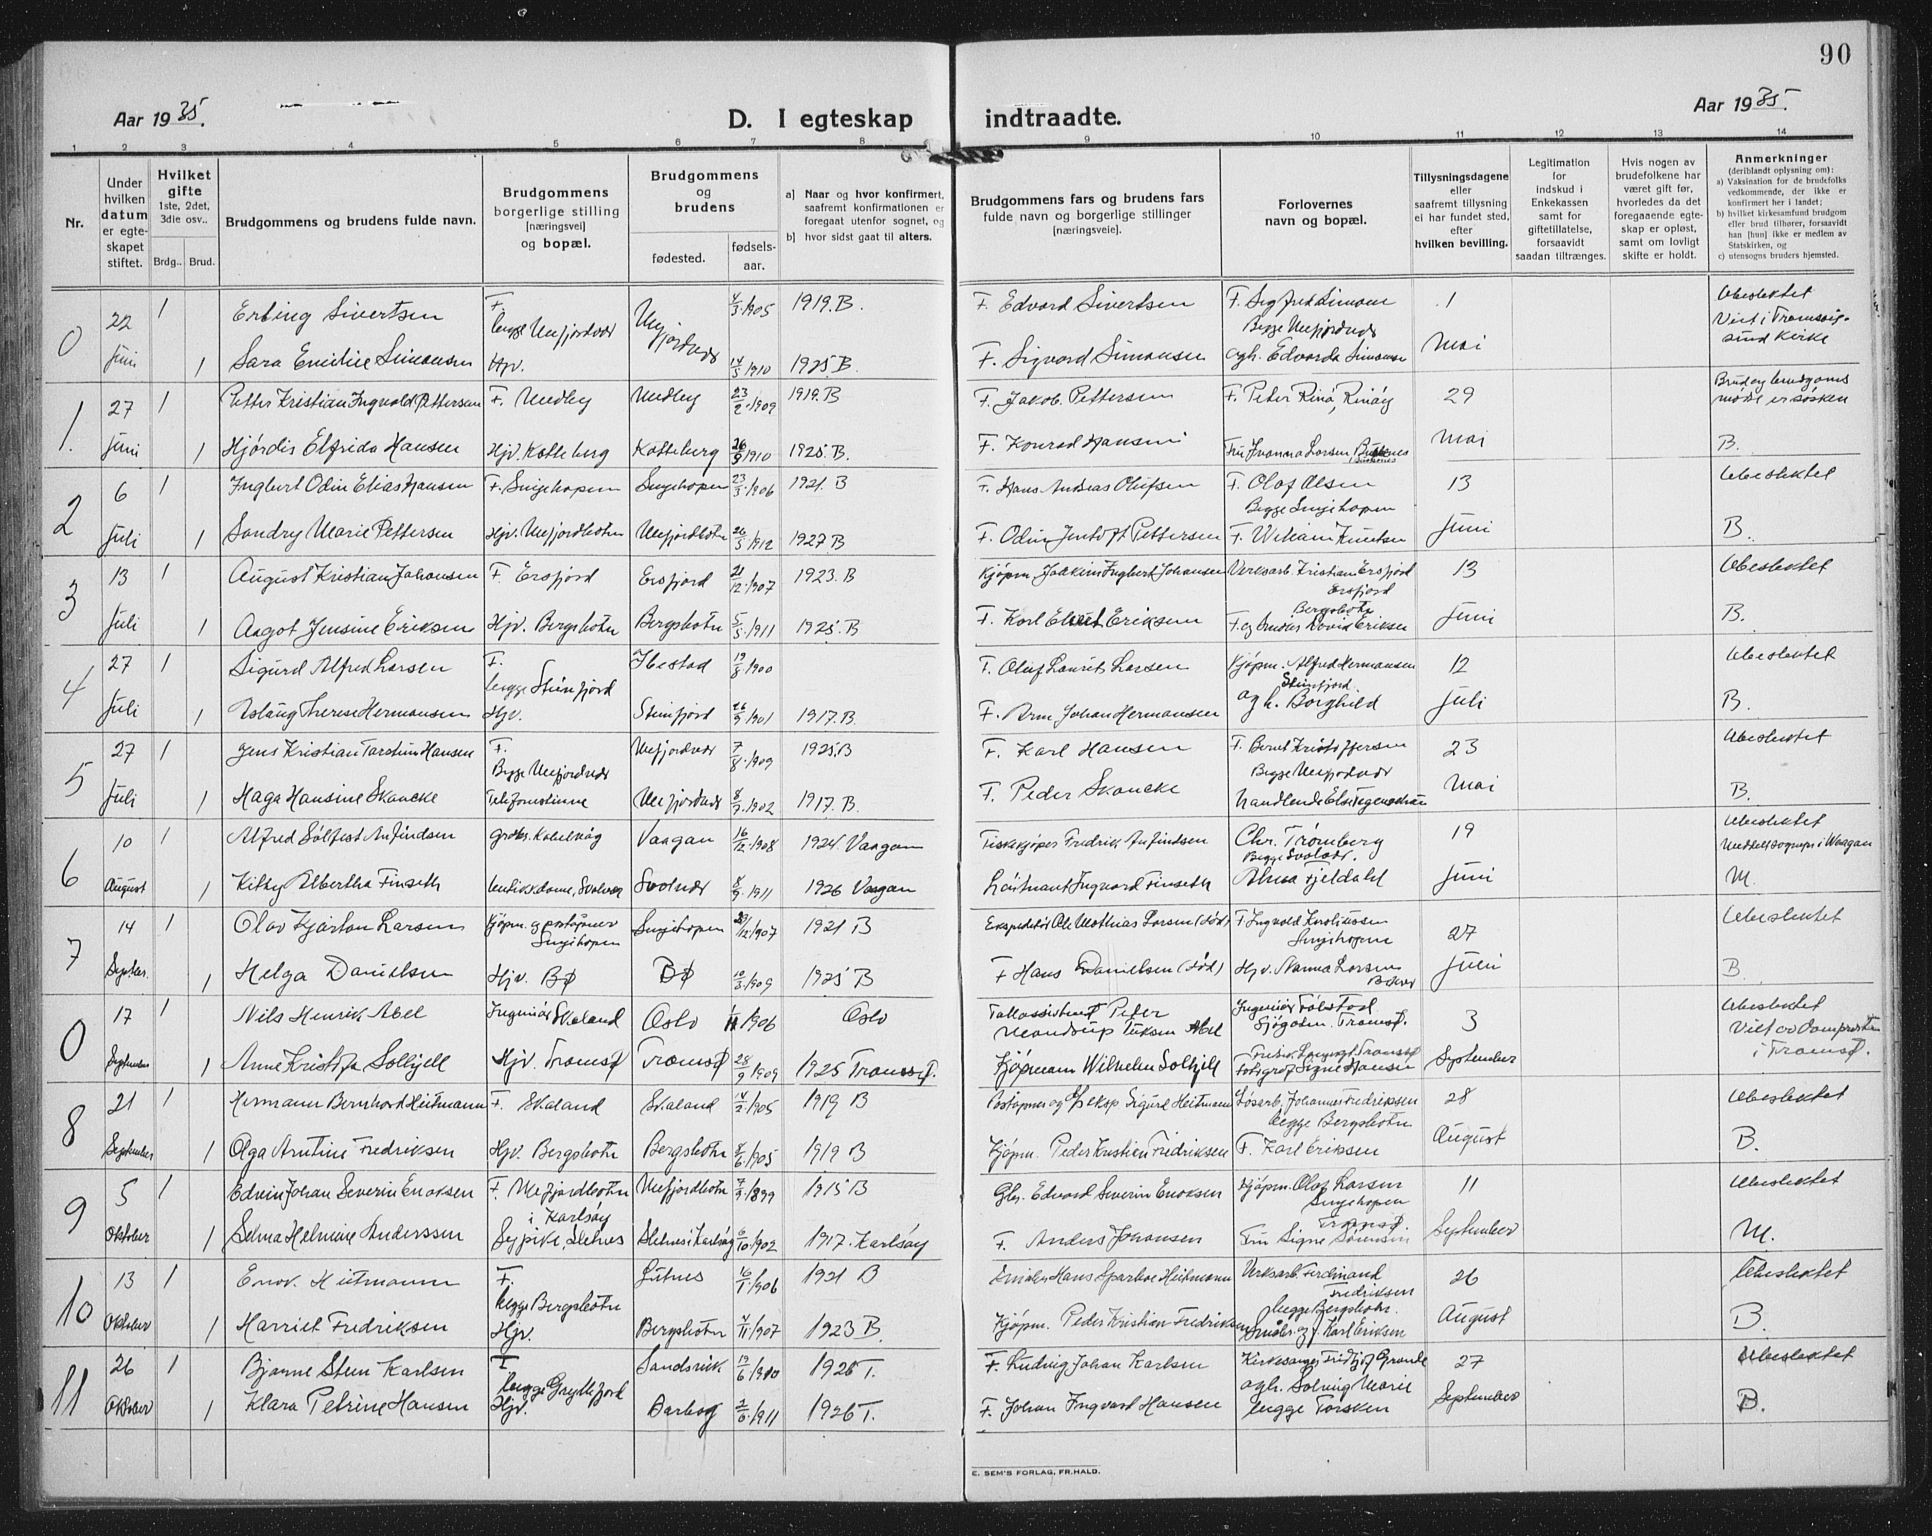 90
Aar 1935.
D. I egteskap indtraadte.
Aar 1935.
1 2 3 4 5 6 7 8 9 10 11 12 13 14
Nr.
Under hvilken datum er egteskapet stiftet.
Hvilket gifte
1ste, 2det, 3die osv..
Brdg.. Brud.
Brudgommens og brudens fulde navn.
Brudgommens borgerlige stilling [næringsvei] og bopæl.
Brudgommens og brudens
fødested.
fødselsaar.
a] Naar og hvor konfirmert, saafremt konfirmationen er foregaat utenfor sognet, og
b] hvor sidst gaat til alters.
Brudgommens fars og brudens fars fulde navn og borgerlige stillinger [næringsveie].
Forlovernes navn og bopæl.
Tillysningsdagene eller saafremt tillysning ei har fundet sted, efter hvilken bevilling.
Legitimation for indskud i Enkekassen samt for giftetillatelse, forsaavidt saadan tiltrænges.
Hvis nogen av brudefolkene har været gift før, hvorledes da det foregaaende egteskap er opløst, samt om lovligt skifte er holdt.
Anmerkninger
(deriblandt oplysning om):
a) Vaksination for de brudefolks vedkommende, der ikke er konfirmert her i landet;
b) hvilket kirkesamfund brudgom eller brud tilhører, forsaavidt han [hun] ikke er medlem av Statskirken, og
c) utensogns bruders hjemsted.
0 22 Juni 1 Erling Sivertsen F. begge Mefjordvær Mefjordvær 1905 1919. B. F. Edvard Sivertsen F. Sigfred Simons. Begge Mefjordvær 1 Ubeslektet
1 Sara Emilie Simonsen Hjv. 14/5 1910 1925 B. F. Sigvard Simonsen og h. Edvarda Simonsen Mai
1. 27 Juni 1 Petter Kristian Ingvald Pettersen F. Medby Medby 23/2 1909 1919. B F. Jakob Pettersen F. Peter Rinø, Rinøy 29
1 Hjørdis Elfrida Hansen Hjv. Katteberg Katteberg 26/9 1910 1925. B. F. Konrad Hansen Fru Ivanna Larsen Mai B.
2 6 Juli 1 Ingbert Odin Elias Hansen F. Senjehopen Senjehopen 23/3 1906 1921. B F. Hans Andreas Olufsen F. Olaf Olsen Begge Senjehopen 13 Ubeslektet
1 Sandry Marie Pettersen Hjv. Mefjordbotn Mefjordbotn 26/3 1912 1927 B F. Odin Jentoft Pettersen F. Wiliam Knutsen Juni B.
3 13 Juli 1 August Kristian Johansen F. Ersfjord Ersfjord 21/12 1907 1923. B Kjøpm. Joakim Ingbert Johansen Verksarb. Kristian Ersfjord Ersfjord 13 Ubeslektet
1 Aagot Jensine Eriksen Hjv. Bergsbotn Bergsbotn 5/5 1911 1925. B F. Karl Eriksen Bergsbotn Juni B.
4 27 Juli 1 Sigurd Alfred Larsen F. begge Steinfjord Ibestad 19/8 1900 F. Oluf Laurits Larsen Kjøpm. Alfred Hermansen Steinfjord 12 Ubeslektet
1 Aslaug Therese Hermansen Hjv. Steinfjord 26/9 1901 1917. B. F. Arn Johan Hermansen og h. Borghild Juli B.
5 27 Juli 1 Jens Kristian Torstein Hansen F. Begge Mefjordvær Mefjordvær 7/8 1909 1925. B F. Karl Hansen F. Bernt Kristoffersen Begge Mefjordvær 23 Ubeslektet
1 Haga Hansine Skancke Telefonistinne Mefjordvær 8/7 1902 1917. B. F. Peder Skancke Mai B.
6 10 August 1 Alfred Solfest Anfindsen Kabelvåg Vaagan 16/12 1908 1924 Vaagan Fiskekjøper Fredrik Anfindsen Chr. Trømberg Begge Svolvær. 19 Ubeslektet
1 Kitty Albertha Finseth butikkdame, Svolvær Svolvær 1911 1926 Vaagan Løitnant Ingvard Finseth Fjeldahl Juni M.
7 14 Septbr. 1 Olav Kjartan Larsen Kjøpm. og postopner Senjehopen Senjehopen 1907 1921 B Ekspeditør Ole Mathias Larsen (død) F. Ingvald Karoliussen Senjehopen 27 Ubeslektet
1 Helga Danielsen Hjv. Bø Bø 10/3 1909 1925 B F Hans Danielsen (død) Hjv. Nanna Larsen Juli B.
0 17 September 1 Nils Henrik Abel Ingeniør Skaland Oslo 1906 Oslo Peter Abel Ingeniør Tromsø. 3 Ubeslektet i Tromsø.
1 Anne Kristofa Solhjell Hjv. Tromsø Tromsø 28/9 1909 1925 Tromsø. Kjøpmann Wilhelm Solhjell Signe Hansen September
8 21 September 1 Hermann Bernhard Heitmann F. Skaland Skaland 14/2 1905 1919 B Sigurd Heitmann Løsarb. Johannes Fredriksen begge Bergsbotn 28 Ubeslektet
1 Olga Arntine Fredriksen Hjv. Bergsbotn Bergsbotn 1905 1919 B Kjøpm. Peder Kristian Fredriksen F. Karl Eriksen August B.
9 5 Oktober 1 Edvin Johan Severin Enoksen F. Mefjordbotn Mefjordbotn 1899 1915 B Gbr. Edvard Severin Enoksen Kjøpm. Olaf Larsen Senjehopen 11 Ubeslektet
1 Selma Helmine Anderssen i Karlsøy Sypike, Sletnes Sletnes i Karlsøy 1902 1917. Karlsøy F. Anders Johansen Tromsø. Fru Signe Sørensen September M.
10 13 Oktober 1 Enov. Heitmann F. begge Bergsbotn Lutnes 16/1 1906 1921 B Hans Sparboe Heitmann Verksarb. Ferdinand Fredriksen begge Bergsbotn. 26 Ubeslektet
1 Harriet Fredriksen Hjv. Bergsbotn 4/11 1907 1923 B. Kjøpm. Peder Kristian Fredriksen Karl Eriksen August B.
11 26 Oktober 1 Bjarne Stein Karlsen F. begge Gryllefjord Sandsvik 19/6 1910 1926 T. F. Ludvig Johan Karlsen Kirkesanger Fridtjof Grande 27 Ubeslektet
1 Klara Petrine Hansen Hjv. 1911 1926 T. F. Johan Ingvard Hansen og h. Solveig Marie begge Torsken September B.
E. SEM'S FORLAG, FR.HALD.